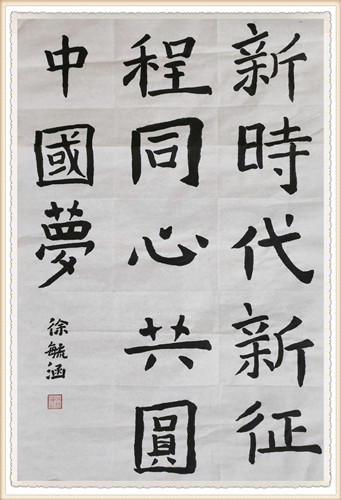 新時代新征
程同心共圓
中國夢
徐毓涵